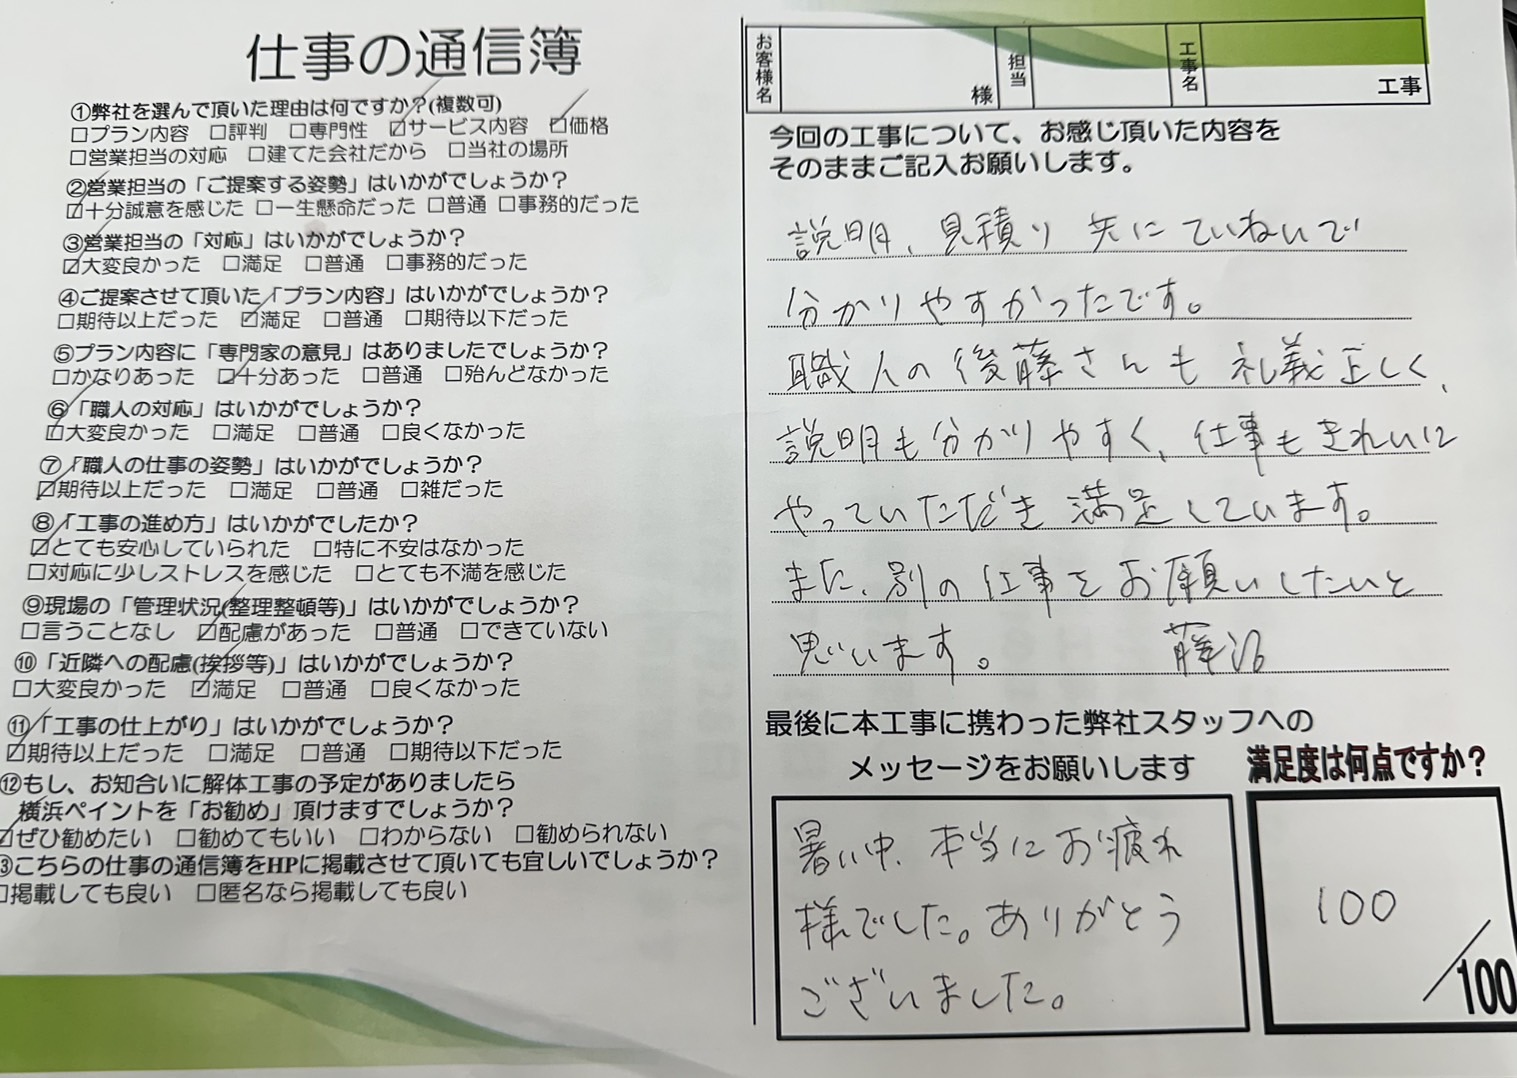 仕事の通信簿
①弊社を選んで頂いた理由は何ですか?(複数可)
□プラン内容 □評判 □専門性 ☑サービス内容 ☑価格
□営業担当の対応 □建てた会社だから □当社の場所
②営業担当の「ご提案する姿勢」はいかがでしょうか?
☑十分誠意を感じた □一生懸命だった □普通 □事務的だった
③営業担当の「対応」はいかがでしょうか?
☑大変良かった □満足 □普通 □事務的だった
④ご提案させて頂いた「プラン内容」はいかがでしょうか?
□期待以上だった ☑満足 □普通 □期待以下だった
⑤プラン内容に「専門家の意見」はありましたでしょうか?
□かなりあった ☑十分あった □普通 □殆んどなかった
⑥「職人の対応」はいかがでしょうか?
☑大変良かった □満足 □普通 □良くなかった
⑦「職人の仕事の姿勢」はいかがでしょうか?
☑期待以上だった □満足 □普通 □雑だった
⑧「工事の進め方」はいかがでしたか?
☑とても安心していられた □特に不安はなかった
□対応に少しストレスを感じた □とても不満を感じた
⑨現場の「管理状況(整理整頓等)」はいかがでしょうか?
□言うことなし ☑配慮があった □普通 □できていない
⑩「近隣への配慮(挨拶等)」はいかがでしょうか?
□大変良かった ☑満足 □普通 □良くなかった
⑪「工事の仕上がり」はいかがでしょうか?
☑期待以上だった □満足 □普通 □期待以下だった
⑫もし、お知合いに解体工事の予定がありましたら
横浜ペイントを「お勧め」頂けますでしょうか?
☑ぜひ勧めたい □勧めてもいい □わからない □勧められない
③こちらの仕事の通信簿をHPに掲載させて頂いても宜しいでしょうか?
□掲載しても良い □匿名なら掲載しても良い
お客様名 様 担当 工事名 工事
今回の工事について、お感じ頂いた内容を
そのままご記入お願いします。
説明、見積り 共にていねいで
分かりやすかったです。
職人の後藤さんも礼義正しく、
説明も分かりやすく、仕事もきれいに
やっていただき満足しています。
また、別の仕事をお願いしたいと
思います。 藤沼
最後に本工事に携わった弊社スタッフへの
メッセージをお願いします
満足度は何点ですか?
暑い中、本当にお疲れ
様でした。ありがとう
ございました。
100
/100